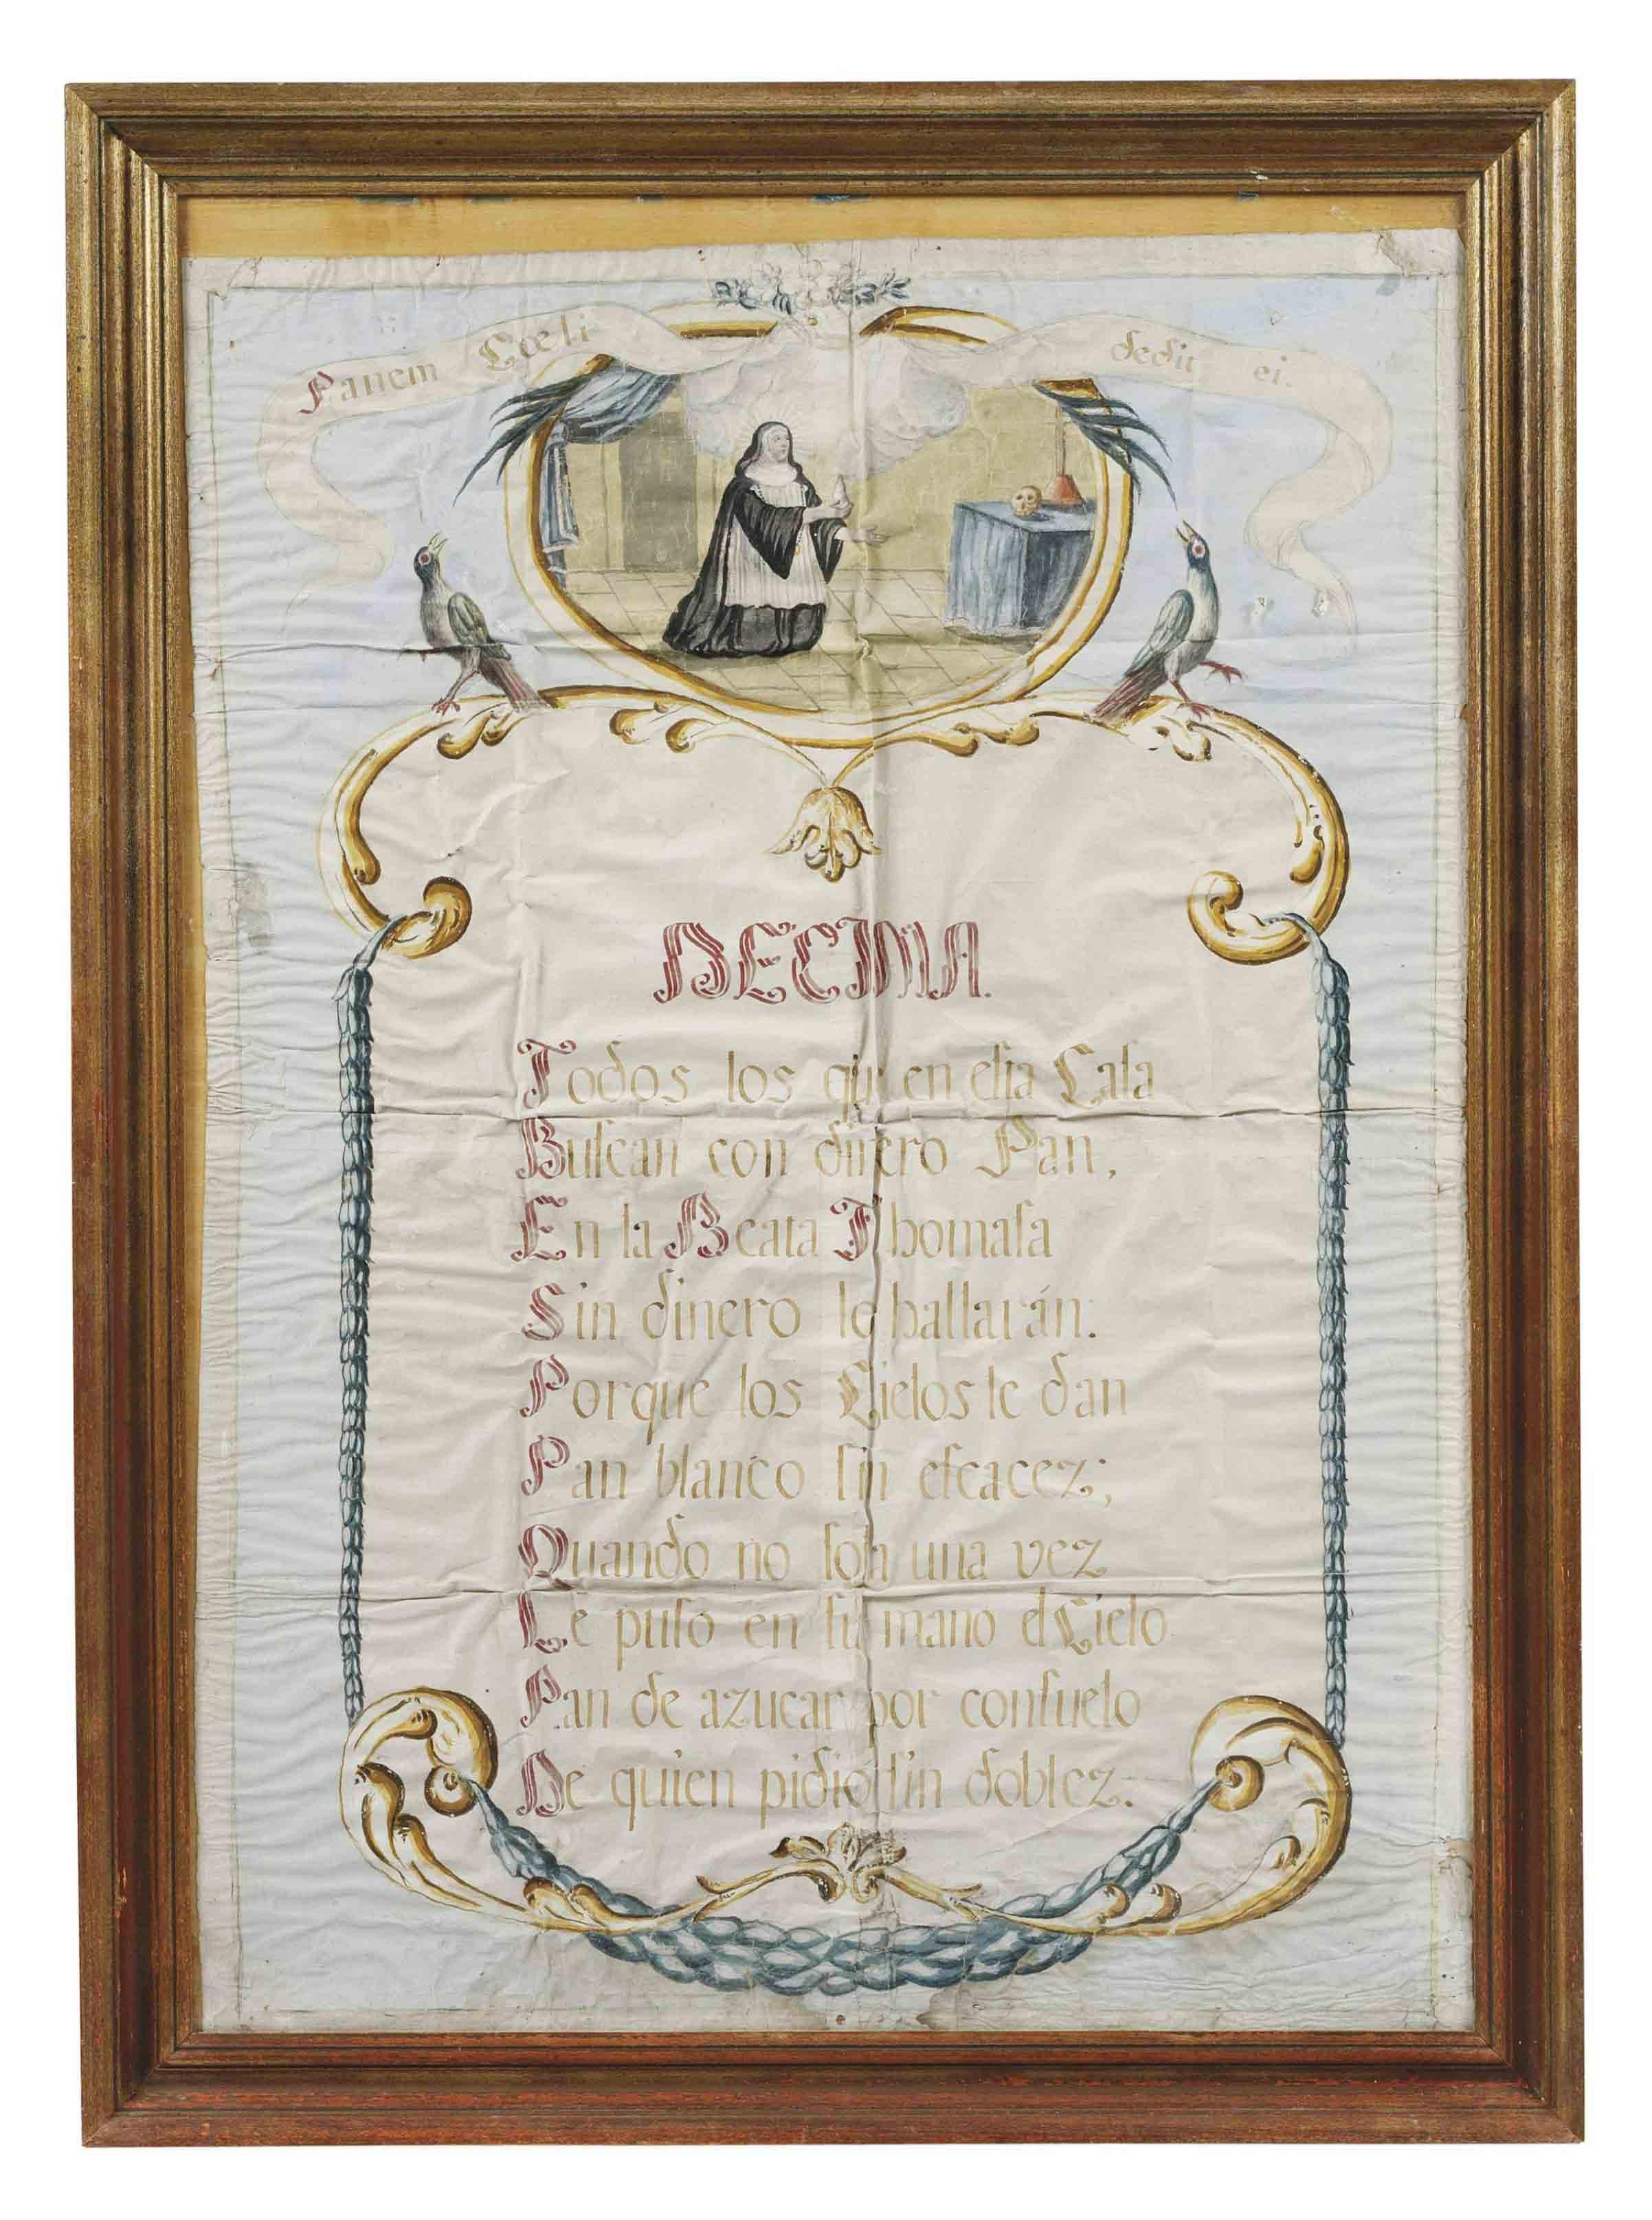 Panem Cœli dedit ei.
DECIMA.
Todos los que en eſta Caſa
Buſcan con dinero Pan,
En la Beata Thomaſa
Sin dinero lo hallarán:
Porque los Cielos le dan
Pan blanco ſin eſcacez;
Quando no ſola una vez
Le puſo en ſu mano el Cielo
Pan de azucar por conſuelo
De quien pidió ſin doblez.